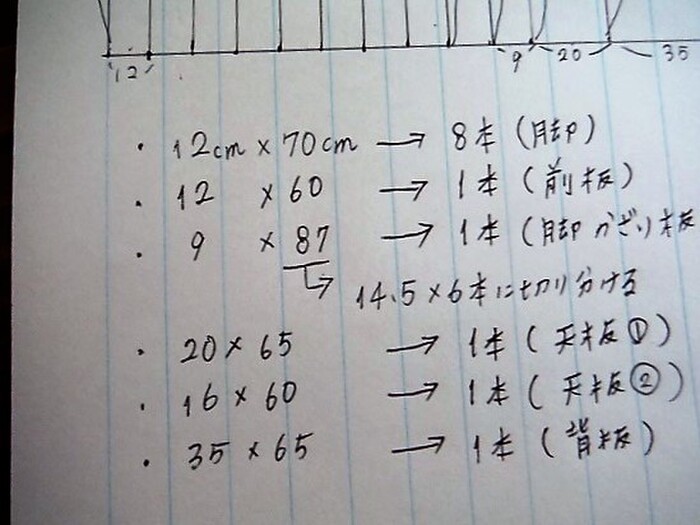 12 9 20 35
・ 12cm × 70cm → 8本 (脚)
・ 12 × 60 → 1本 (前板)
・ 9 × 87 → 1本 (脚かざり板
↳ 14.5 × 6本に切り分ける
・ 20 × 65 → 1本 (天板①)
・ 16 × 60 → 1本 (天板②)
・ 35 × 65 → 1本 (背板)